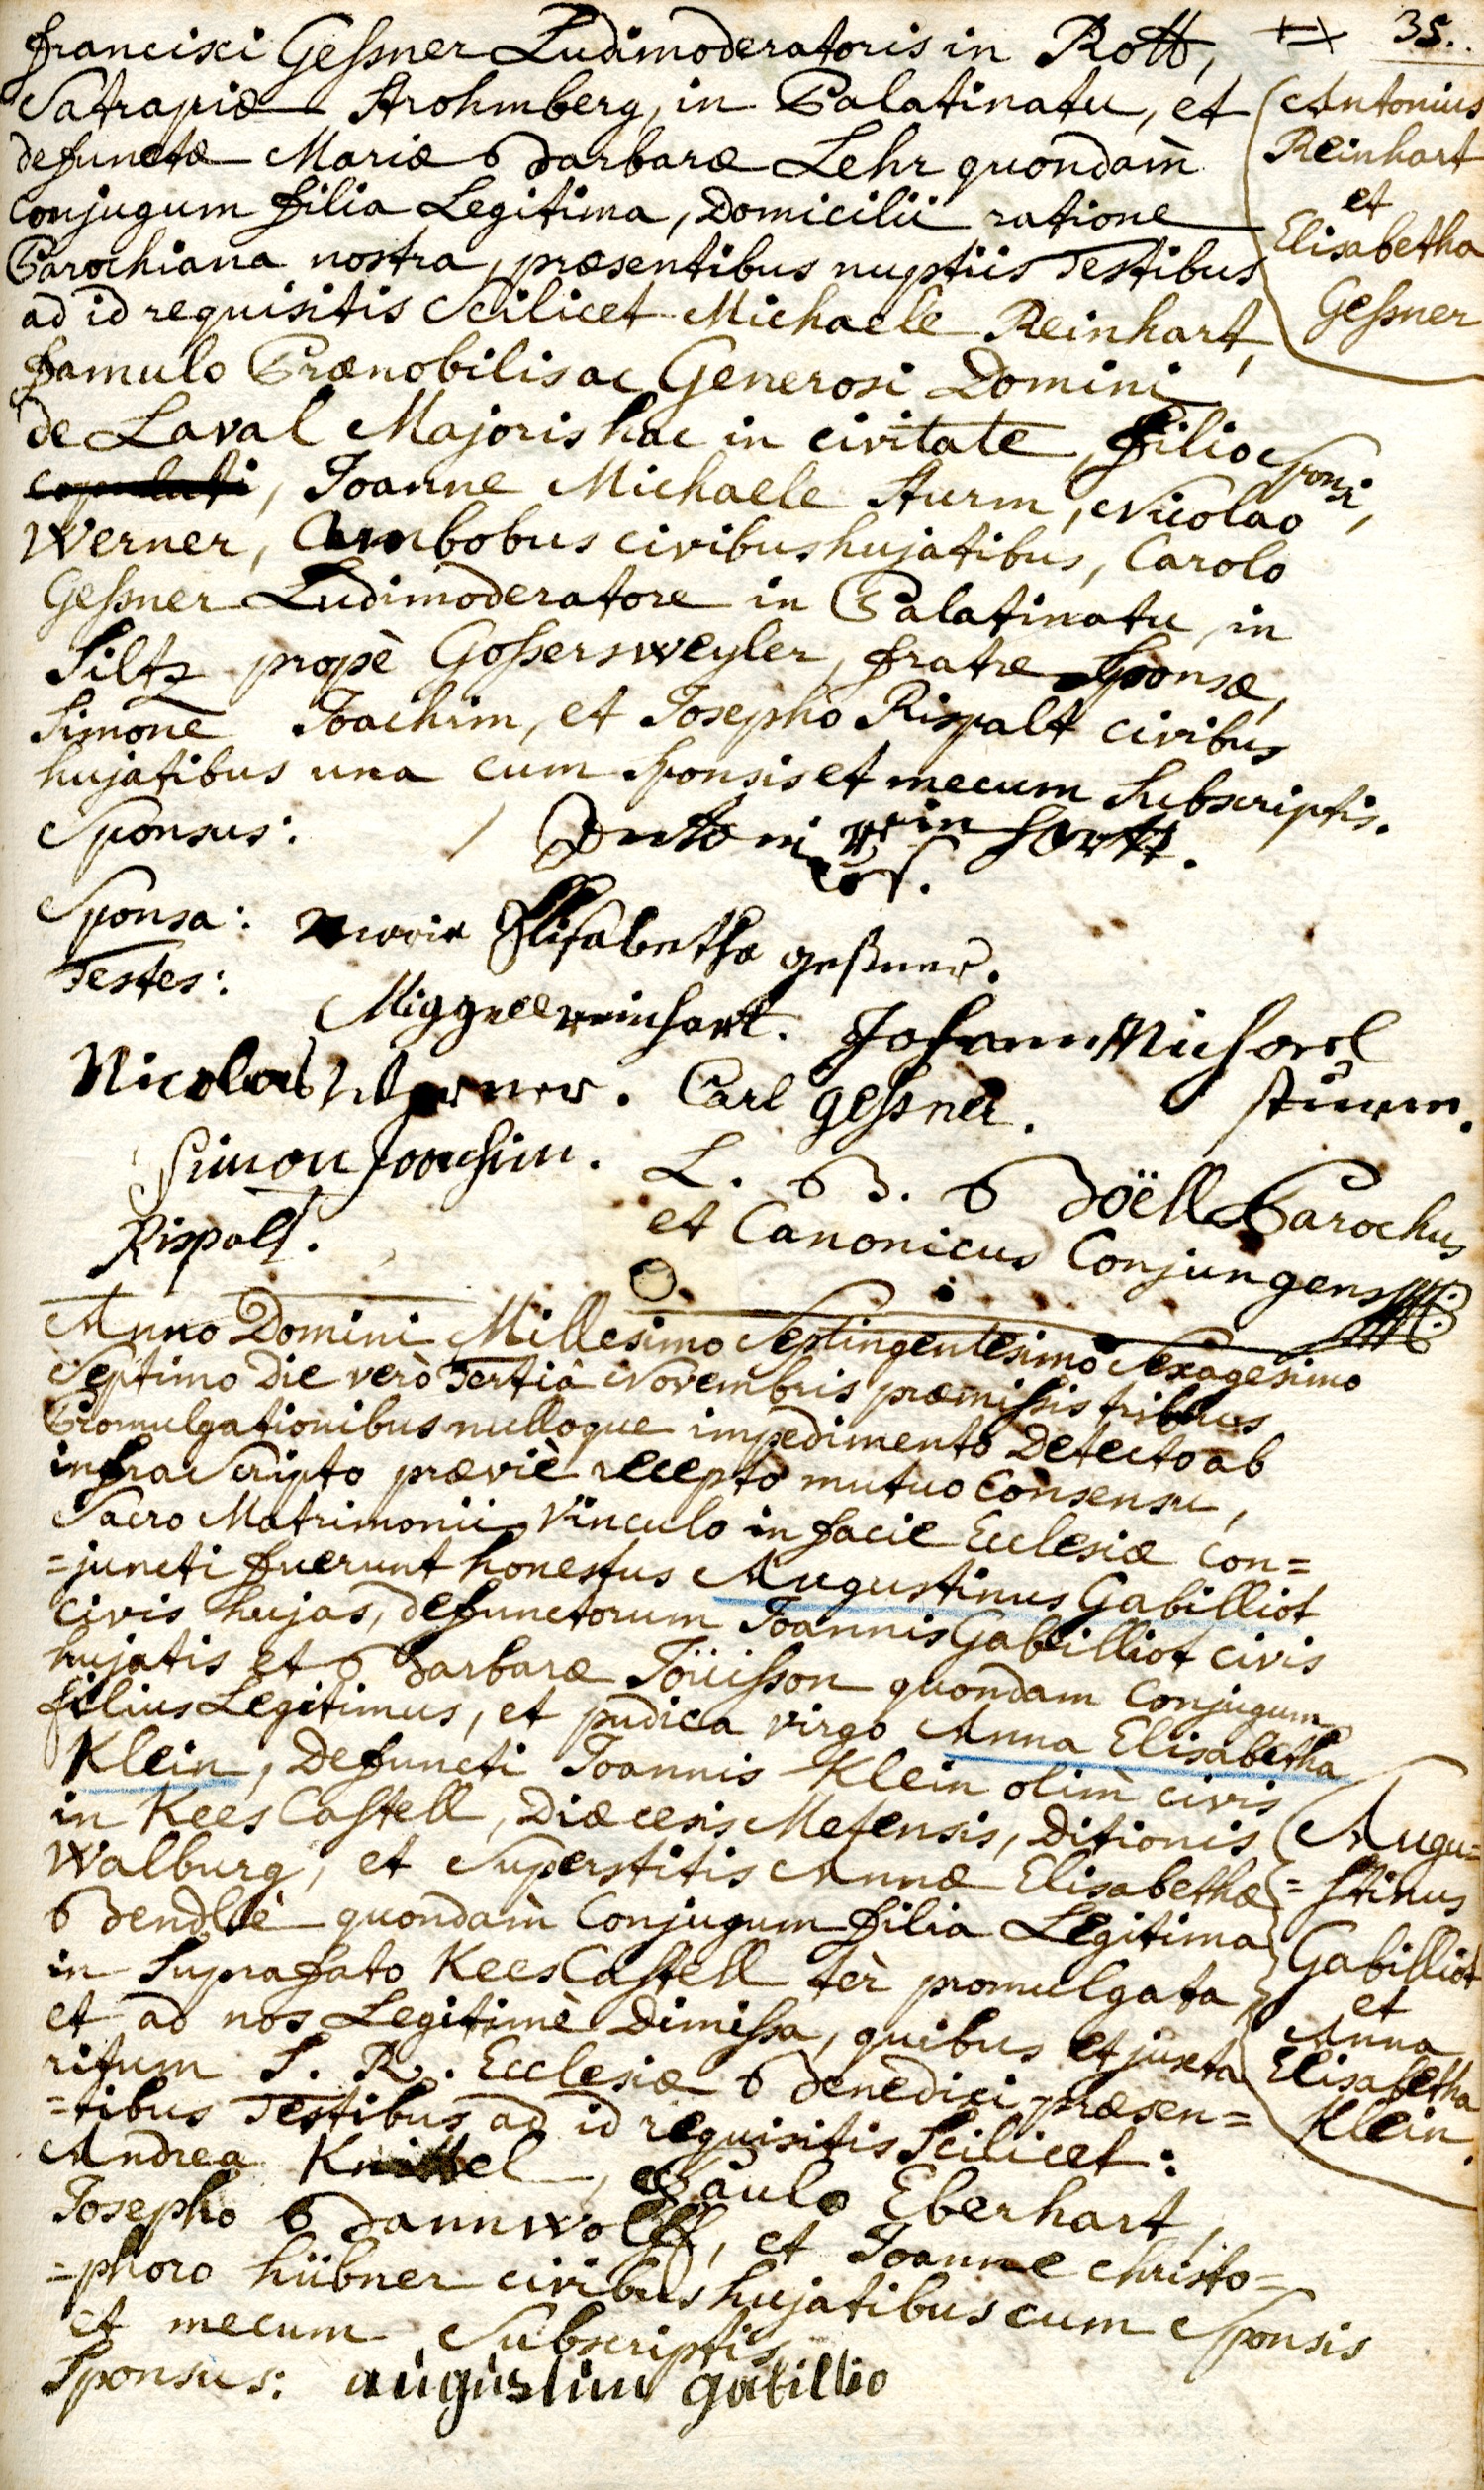 35.
francisci Geßner Ludimoderatoris in Rott,
Satrapiæ Strohmberg, in Palatinatu, et
defunctæ Mariæ Barbaræ Lehr quondam̀
Conjugum filia Legitima, Domicilii ratione
Parochiana nostra, præsentibus nuptiis Testibus
ad id requisitis Scilicet Michaele Reinhart,
famulo Prænobilis ac Generosi Domini
de Laval Majoris hac in civitate, filio Sponsi,
copulati, Joanne Michaele Sturm, Nicolao
Werner, Ambobus civibus hujatibus, Carolo
Geßner Ludimoderatore in Palatinatu, in
Siltz propè Goßersweyler, fratre Sponsæ,
Simone Joachim, et Josepho Rispalt civibus
hujatibus una cum Sponsis et mecum Subscriptis.
Antonius
Reinhart
et
Elisabetha
Geßner
Sponsus: Antoni reinhartt.
Sponsa: Elisabetha geßner.
Testes: Miggeel reinhart. Johann Michael
stürm.
Nicolas Werner. Carl geßner.
Simon Joachim. L. B. Boëll Parochus
Rispalt. et Canonicus Conjungens
Anno Domini Millesimo Septingentesimo Sexagesimo
Septimo Die verò Tertiâ Novembris præmissis tribus
Promulgationibus nulloque impedimento Detecto ab
infra Scripto præviè recepto mutuo Consensu,
Sacro Matrimonii Vinculo in facie Ecclesiæ con=
=juncti fuerunt honestus Augustinus Gabilliot
civis hujas, defunctorum Joannis Gabilliot civis
hujatis et Barbaræ Toüisson quondam Conjugum
filius Legitimus, et pudica virgo Anna Elisabetha
Klein, Defuncti Joannis Klein olim̀ civis
in Kees Castell, Diæcesis Metensis, Ditionis
Walburg, et Superstitis Annæ Elisabethæ
Bendlè quondam̀ Conjugum filia Legitima
in Suprafato Kees Castell tèr promulgata
et ad nos Legitimè Dimissa, quibus et juxta
ritum S. R. Ecclesiæ Benedixi præsen=
=tibus Testibus ad id requisitis Scilicet:
Andrea Knittel, Paulo Eberhart,
Josepho Bannwolff, et Joanne Christo=
=phoro hübner civibus hujatibus cum Sponsis
et mecum Subscriptis
Augu=
=stinus
Gabilliot
et
Anna
Elisabetha
Klein.
Sponsus: augustin gabillio